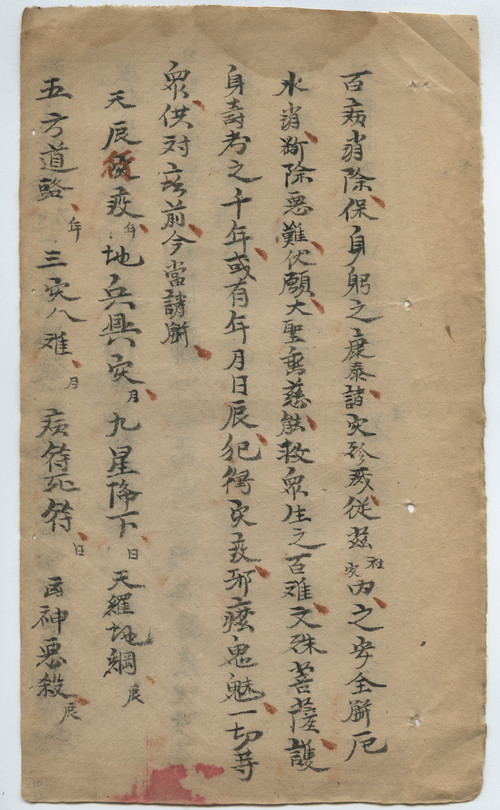 百病消除保身躬之康泰諸灾殄滅従兹社灾内之安全觧厄
水消斷除惡難伏願大聖垂慈能救衆生之百难文殊菩薩護
身壽考之千年或有年月日辰犯獨灾疫邪魔鬼魅一切等
衆供对 前今當請觧
天辰 疫年地兵興灾月九星降下日天羅地網辰
五方道路年三灾八难月病符死符日凶神惡殺辰